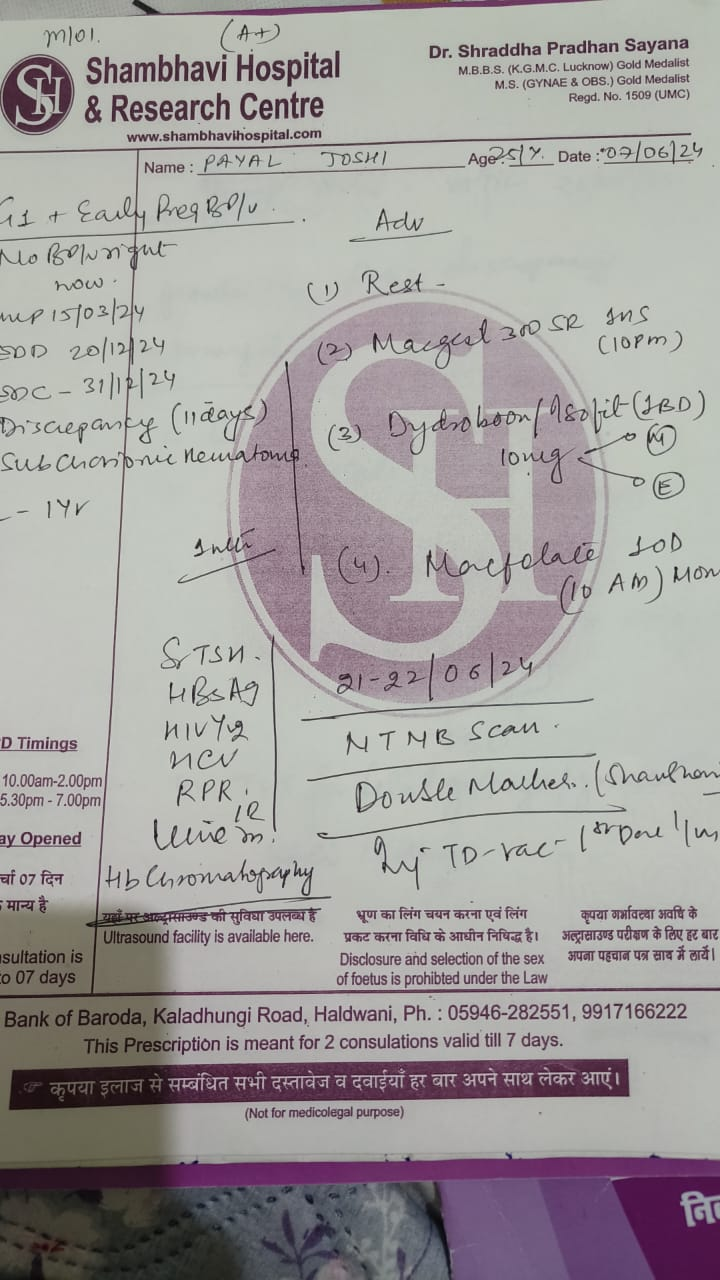 M/01.
(A+)
Shambhavi Hospital
& Research Centre
www.shambhavihospital.com
Dr. Shraddha Pradhan Sayana
M.B.B.S. (K.G.M.C. Lucknow) Gold Medalist
M.S. (GYNAE & OBS.) Gold Medalist
Regd. No. 1509 (UMC)
Name : PAYAL JOSHI Age 25/Y. Date : 07/06/24
G1 + Early Preg BP/v
No BP/v right
now.
LMP 15/03/24
EDD 20/12/24
EDC - 31/12/24
Discrepancy (11 days)
Sub Chorionic Hematoma
- 1Yr
Adv
(1) Rest -
(2) 300 SR 1HS
(10pm)
(3) Dydroboon / (1BD)
10mg M
E
(4). Macfolate 1OD
(10 AM)
Sr TSH.
HBsAg
HIV 1/2
HCV
RPR.
Urine
Hb Chromatography
21-22/06/24
NTNB Scan.
Double Marker.
Inj- TD-vac- 1st Dose
D Timings
10.00am-2.00pm
5.30pm - 7.00pm
ay Opened
र्चा 07 दिन
मान्य है
nsultation is
to 07 days
यहाँ पर अल्ट्रासाउण्ड की सुविधा उपलब्ध है
Ultrasound facility is available here.
भ्रूण का लिंग चयन करना एवं लिंग
प्रकट करना विधि के आधीन निषिद्ध है।
Disclosure and selection of the sex
of foetus is prohibted under the Law
कृपया गर्भावस्था अवधि के
अल्ट्रासाउण्ड परीक्षण के लिए हर बार
अपना पहचान पत्र साथ में लायें।
Bank of Baroda, Kaladhungi Road, Haldwani, Ph. : 05946-282551, 9917166222
This Prescription is meant for 2 consulations valid till 7 days.
कृपया इलाज से सम्बंधित सभी दस्तावेज व दवाईयाँ हर बार अपने साथ लेकर आएं।
(Not for medicolegal purpose)